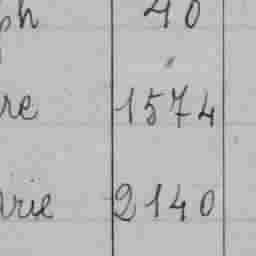 ph 40
re 1574
rie 2140